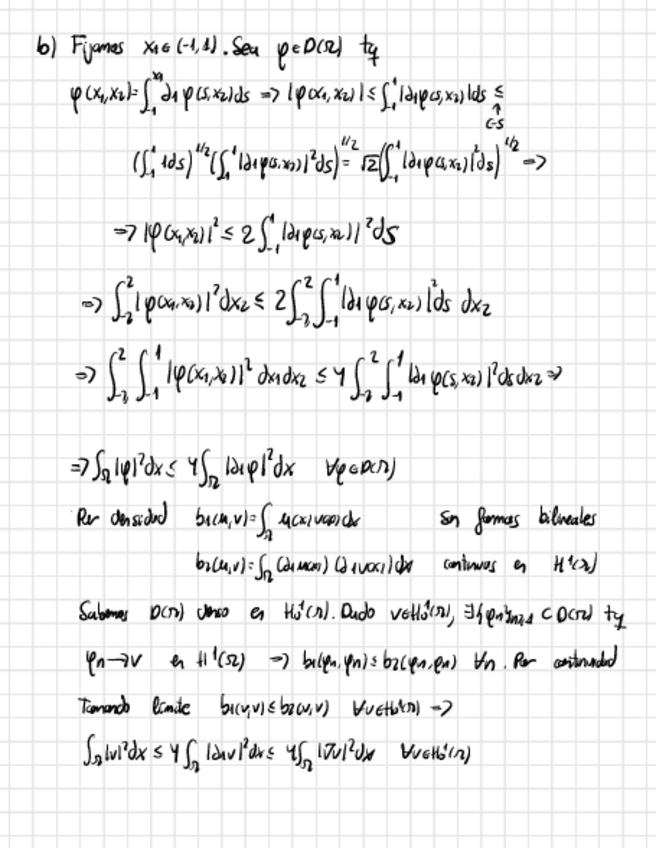 b) Fijamos x₁∈(-1,1). Sea φ∈D(Ω) tq
φ(x₁,x₂)=∫₋₁^x₁ ∂₁φ(s,x₂)ds => |φ(x₁,x₂)| ≤ ∫₋₁¹ |∂₁φ(s,x₂)|ds ≤
↑
C-S
(∫₋₁¹ 1ds)^1/2 (∫₋₁¹ |∂₁φ(s,x₂)|²ds)^1/2 = √2(∫₋₁¹ |∂₁φ(s,x₂)|²ds)^1/2 =>
=> |φ(x₁,x₂)|² ≤ 2∫₋₁¹ |∂₁φ(s,x₂)|²ds
=> ∫₋₂² |φ(x₁,x₂)|²dx₂ ≤ 2∫₋₂² ∫₋₁¹ |∂₁φ(s,x₂)|²ds dx₂
=> ∫₋₂² ∫₋₁¹ |φ(x₁,x₂)|² dx₁dx₂ ≤ 4∫₋₂² ∫₋₁¹ |∂₁φ(s,x₂)|²ds dx₂ =>
=> ∫Ω |φ|²dx ≤ 4∫Ω |∂₁φ|²dx ∀φ∈D(Ω)
Por densidad b₁(u,v)=∫Ω u(x)v(x)dx Son formas bilineales
b₂(u,v)=∫Ω (∂₁u(x))(∂₁v(x))dx continuas en H¹(Ω)
Sabemos D(Ω) denso en H₀¹(Ω). Dado v∈H₀¹(Ω), ∃{φn}n≥1 ⊂ D(Ω) tq
φn→v en H¹(Ω) => b₁(φn,φn) ≤ b₂(φn,φn) ∀n. Por continuidad
Tomando límite b₁(v,v) ≤ b₂(v,v) ∀v∈H₀¹(Ω) =>
∫Ω |v|²dx ≤ 4∫Ω |∂₁v|²dx ≤ 4∫Ω |∇v|²dx ∀v∈H₀¹(Ω)